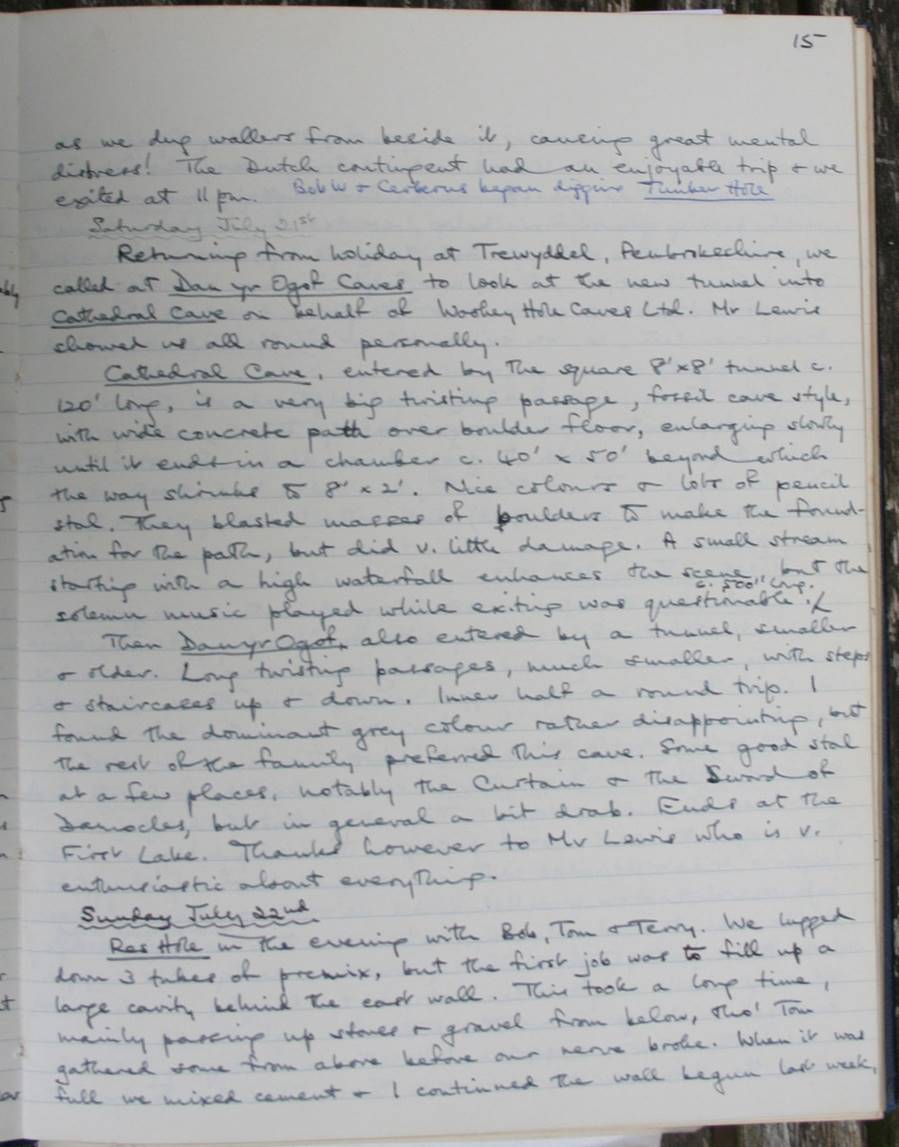 15
as we dug wallers from beside it, causing great mental
distress! The Dutch contingent had an enjoyable trip + we
exited at 11 pm. Bob W + Cerberus began digging Timber Hole
Saturday July 21st
Returning from holiday at Trewyddel, Pembrokeshire, we
called at Dan yr Ogof Caves to look at the new tunnel into
Cathedral Cave on behalf of Wookey Hole Caves Ltd. Mr Lewis
showed us all round personally.
Cathedral Cave, entered by the square 8'x8' tunnel c.
120' long, is a very big twisting passage, fossil cave style,
with wide concrete path over boulder floor, enlarging slowly
until it ends in a chamber c. 40' x 50' beyond which
the way shrinks to 8' x 2'. Nice colours + lots of pencil
stal. They blasted masses of boulders to make the found-
ation for the path, but did v. little damage. A small stream
starting with a high waterfall enhances the scene, but the
solemn music played while exiting was questionable. c. 500' long.
Then Dan yr Ogof, also entered by a tunnel, smaller
+ older. Long twisting passages, much smaller, with steps
+ staircases up + down. Inner half a round trip. I
found the dominant grey colour rather disappointing, but
the rest of the family preferred this cave. Some good stal
at a few places, notably the Curtain + the Sword of
Damocles, but in general a bit drab. Ends at the
First Lake. Thanks however to Mr Lewis who is v.
enthusiastic about everything.
Sunday July 22nd
Res Hole in the evening with Bob, Tom + Terry. We lugged
down 3 tubes of premix, but the first job was to fill up a
large cavity behind the east wall. This took a long time,
mainly passing up stones + gravel from below, tho' Tom
gathered some from above before our nerve broke. When it was
full we mixed cement + I continued the wall begun last week,